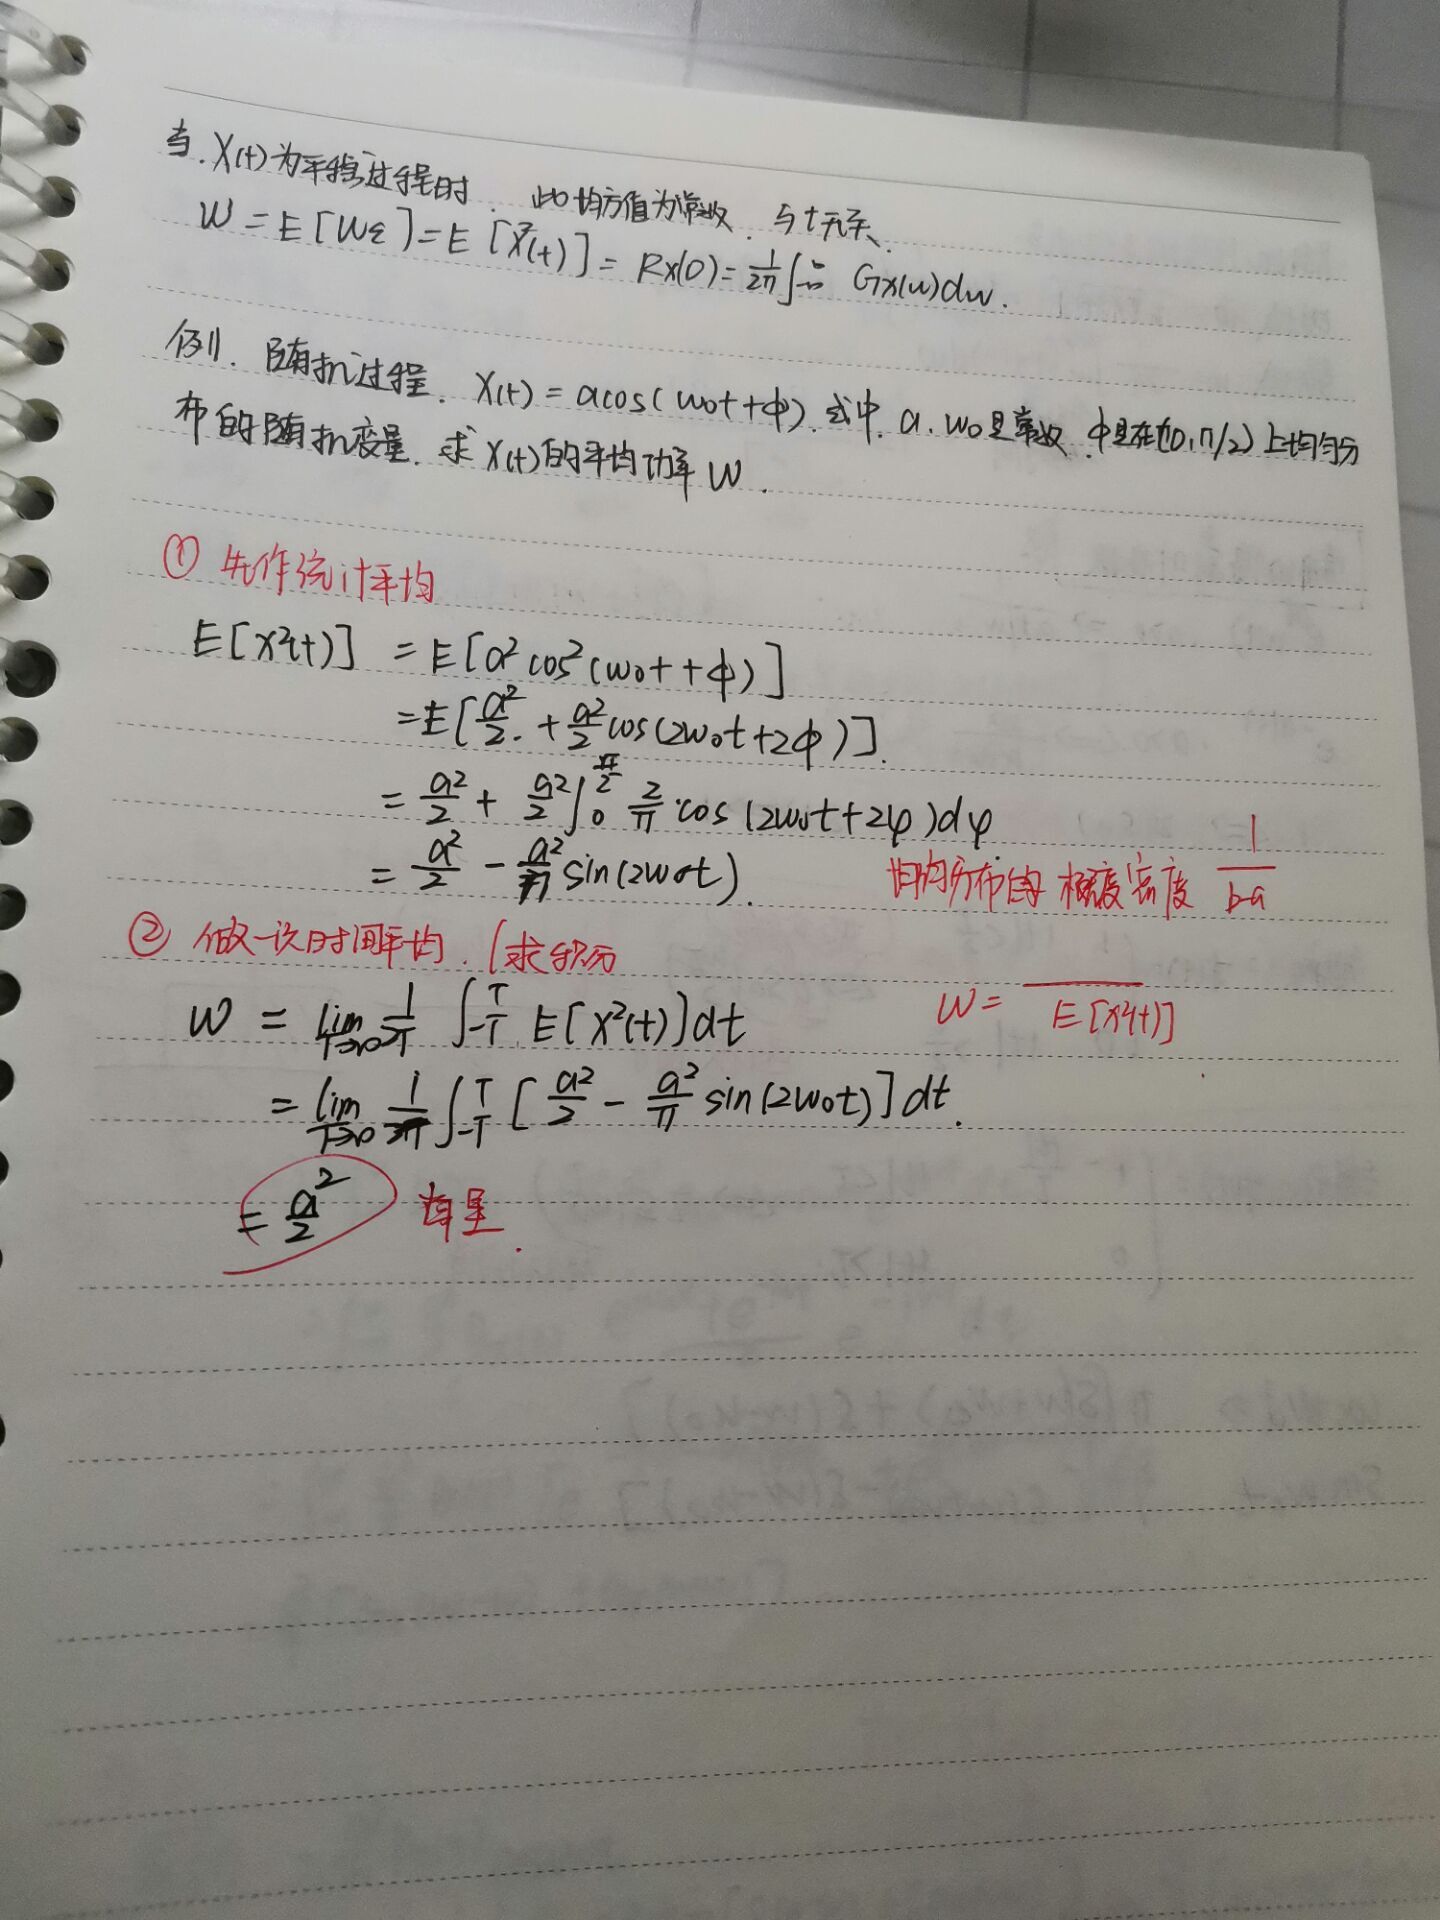 当.X(t)为平稳过程时. 此均方值为常数. 与t无关.
W = E[Wε] = E[X²(t)] = Rx(0) = 1/2π ∫_{-∞}^{∞} Gx(w)dw.
例1. 随机过程. X(t) = acos(w₀t+φ). 式中. a.w₀是常数. φ是在(0,π/2)上均匀分
布的随机变量. 求X(t)的平均功率W.
① 先作统计平均
E[X²(t)] = E[a²cos²(w₀t+φ)]
= E[a²/2 + a²/2 cos(2w₀t+2φ)].
= a²/2 + a²/2 ∫_0^{π/2} 2/π·cos(2w₀t+2φ)dφ.
= a²/2 - a²/π sin(2w₀t).
均匀分布的概率密度 1/(b-a)
② 做一次时间平均. (求积分
W = lim_{T→∞} 1/2T ∫_{-T}^{T} E[X²(t)]dt
W = \overline{E[X²(t)]}
= lim_{T→∞} 1/2T ∫_{-T}^{T} [a²/2 - a²/π sin(2w₀t)]dt.
= a²/2